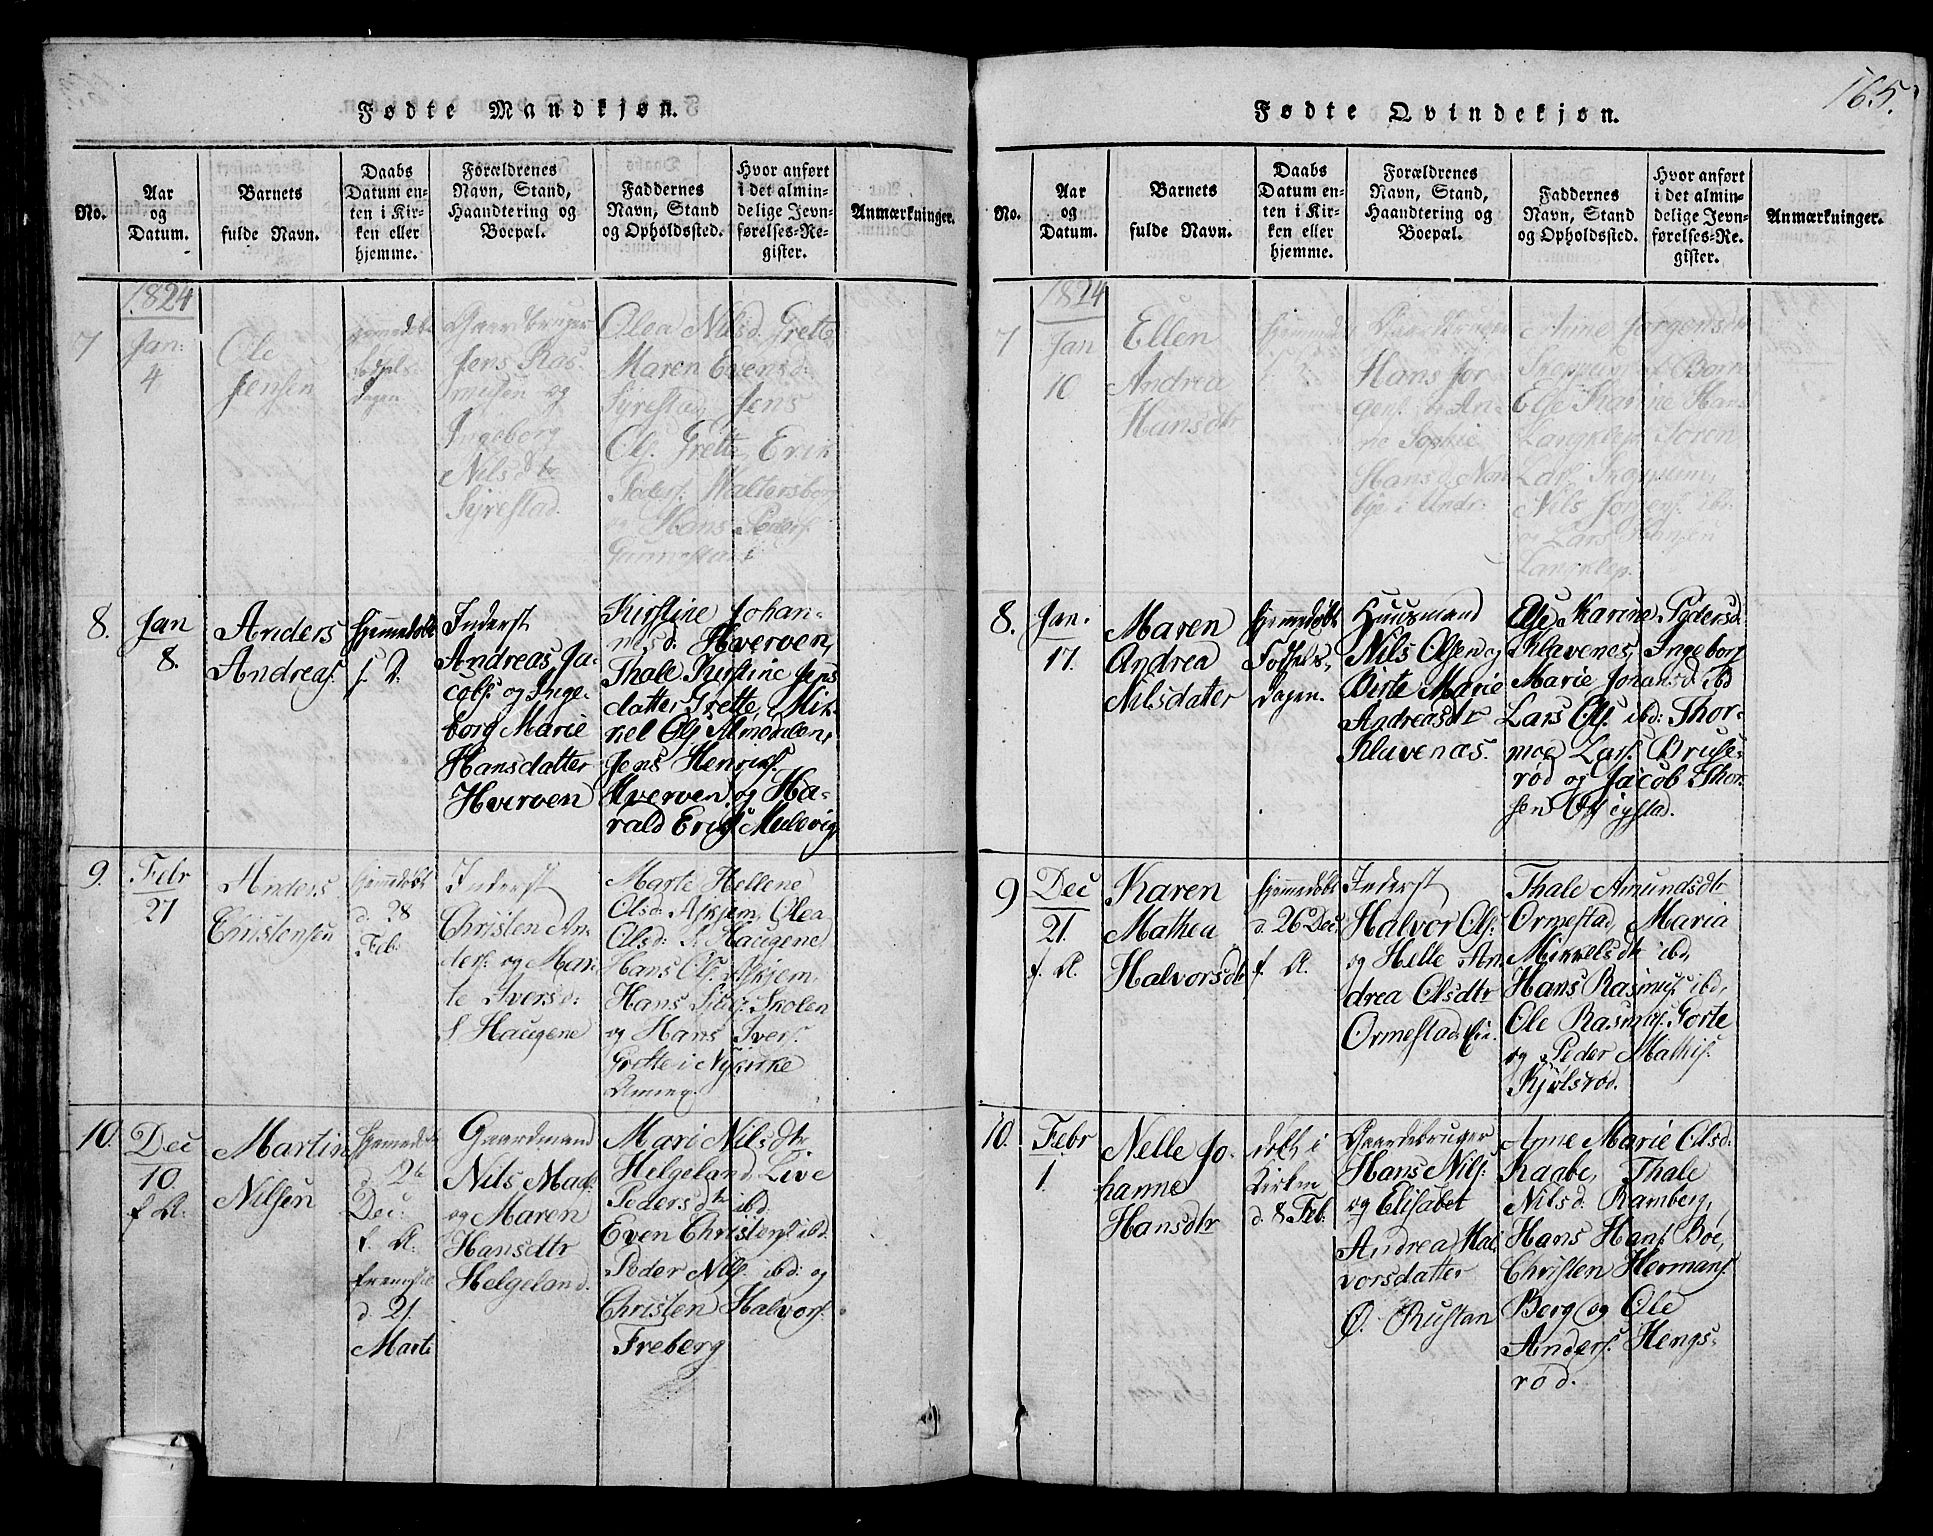 165.
Fødte Mandkjøn.
No.
Aar
og
Datum.
Barnets
fulde Navn.
Daabs
Datum en-
ten i Kir-
ken eller
hjemme.
Forældrenes
Navn, Stand,
Haandtering og
Boepæl.
Faddernes
Navn, Stand
og Opholdssted.
Hvor anført
i det almin-
delige Jevn-
førelses-Re-
gister.
Anmærkninger.
1824
7
Jan:
4
Ole
Jensen
hjemmedøbt
Fødsels
Dagen
Gaardbruger
Jens Ras-
musen og
Ingeborg
Nilsdtr
Fyrestad.
Olea Nilsd. Grette
Maren Evensd:
Jens
Ols. Grette, Erik
Peders.
og Hans Peders.
8.
Jan
8.
Anders
Andreas.
hjemmedøbt
f. D.
Inderst
Andreas Ja-
cobs. og Inge-
borg Marie
Hansdatter
Hverven
Kirstine Johan-
nesd. Hverven,
Thale Kirstine Jens
datter Grette, Mik-
kel Ols. Almedalen,
Jens Henriks.
Hverven og Ha-
rald Eriks. Mulevig
9.
Febr
27
Anders
Christensen
hjemmedøbt
d. 28
Feb:
Inderst
Christen An-
ders. og Mar-
te Iversd:
S Haugene
Marte Hellene
Olsd: Askjem, Olea
Olsd: S Haugene
Hans Ols. Askjem,
Hans Skolen
og Hans Ivers.
Grette i Nykirke
Anneg.
10.
Dec
10
f. A:
Martin
Nilsen
hjemmedøbt
d. 26
Dec:
f. A:
fremstil
d. 21
Marts
Gaardmand
Nils Mads.
og Maren
Hansdtr
Helgeland.
Mari Nilsdtr
Helgeland, Live
Pedersdtr ibd:
Even Christens. ibd.
Peder Nils. ibd: og
Christen Halvors.
Freberg
Fødte Qvindekjøn.
No.
Aar
og
Datum.
Barnets
fulde Navn.
Daabs
Datum en-
ten i Kir-
ken eller
hjemme.
Forældrenes
Navn, Stand,
Haandtering og
Boepæl.
Faddernes
Navn, Stand
og Opholdssted.
Hvor anført
i det almin-
delige Jevn-
førelses-Re-
gister.
Anmærkninger.
1824
7
Jan
10
Ellen
Andrea
Hansdtr
Gaardbruger
Hans Jør
gens. An-
ne Sophie
Hansd.
bye i Andr:
Anne Jørgensdtr
Else Karine Han
Langklep Søren
Lars.
Nils Jørgens. ibd
og Lars Hansen
Langklep.
8.
Jan.
17.
Maren
Andrea
Nilsdater
hjemmedøbt
Fødsels-
dagen.
Huusmand
Nils Olsen og
Birte Marie
Andreasdtr
Klavenæs.
Else Karine Pedersd.
Klavenes, Ingeborg
Marie Johansd. ibd
Lars Ols. ibd: Thor-
moe Lars. Bruse-
rød og Jacob Thor
sen
9
Dec
21.
f. A.
Karen
Mathea
Halvorsdtr
hjemmedøbt
d. 26 Dec.
f. A.
Inderst
Halvor Ols.
og Helle An-
drea Olsdtr
Ormestad Eie.
Thale Amundsdtr
Ormestad, Maria
Mikkelsdtr ibd,
Hans Rasmus. ibd,
Ole Rasmus. Gorte
og Peder Mathis.
Kjølsrød.
10.
Febr
1.
Nelle Jo-
hanne
Hansdtr
døbt i
Kirken
d. 8 Feb:
Gaardebruger
Hans Nils:
og Elisabet
Andrea Hal
vorsdatter
Ø. Rustan
Anne Marie Olsd:
Raabe, Thale
Nilsd. Ramberg,
Hans Hans. Boe,
Christen Hermans.
Berg og Ole
Anders. Hengs-
rød.